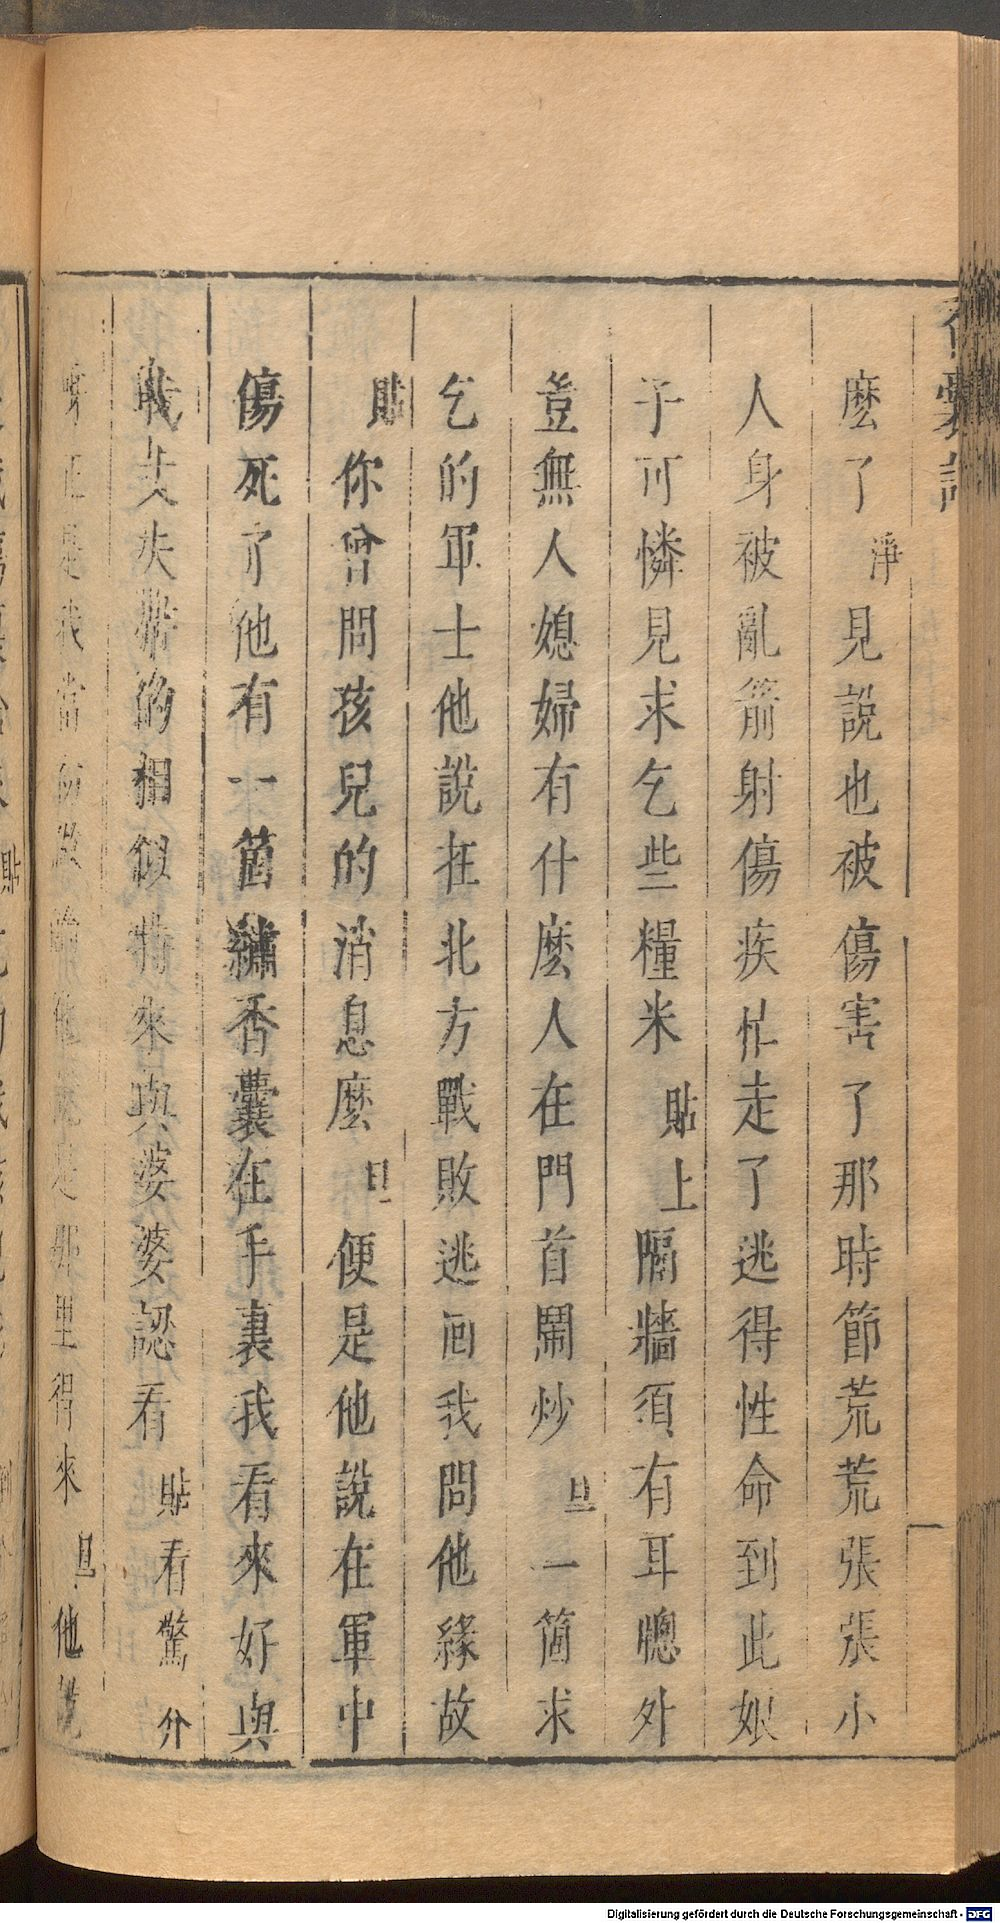 香囊記
麽了淨見說也被傷害了那時節荒荒張張小
人身被亂箭射傷疾忙走了逃得性命到此娘
子可憐見求乞些糧米貼上隔牆須有耳牕外
豈無人媳婦有什麽人在門首鬧炒旦一箇求
乞的軍士他說在北方戰敗逃回我問他緣故
貼你曾問孩兒的消息麽旦便是他說在軍中
傷死了他有一箇繡香囊在手裏我看來好與
我丈夫帶的相似將來與婆婆認看貼看驚介
呀正是我當初做與他是那里得來旦他說
Digitalisierung gefördert durch die Deutsche Forschungsgemeinschaft - DFG